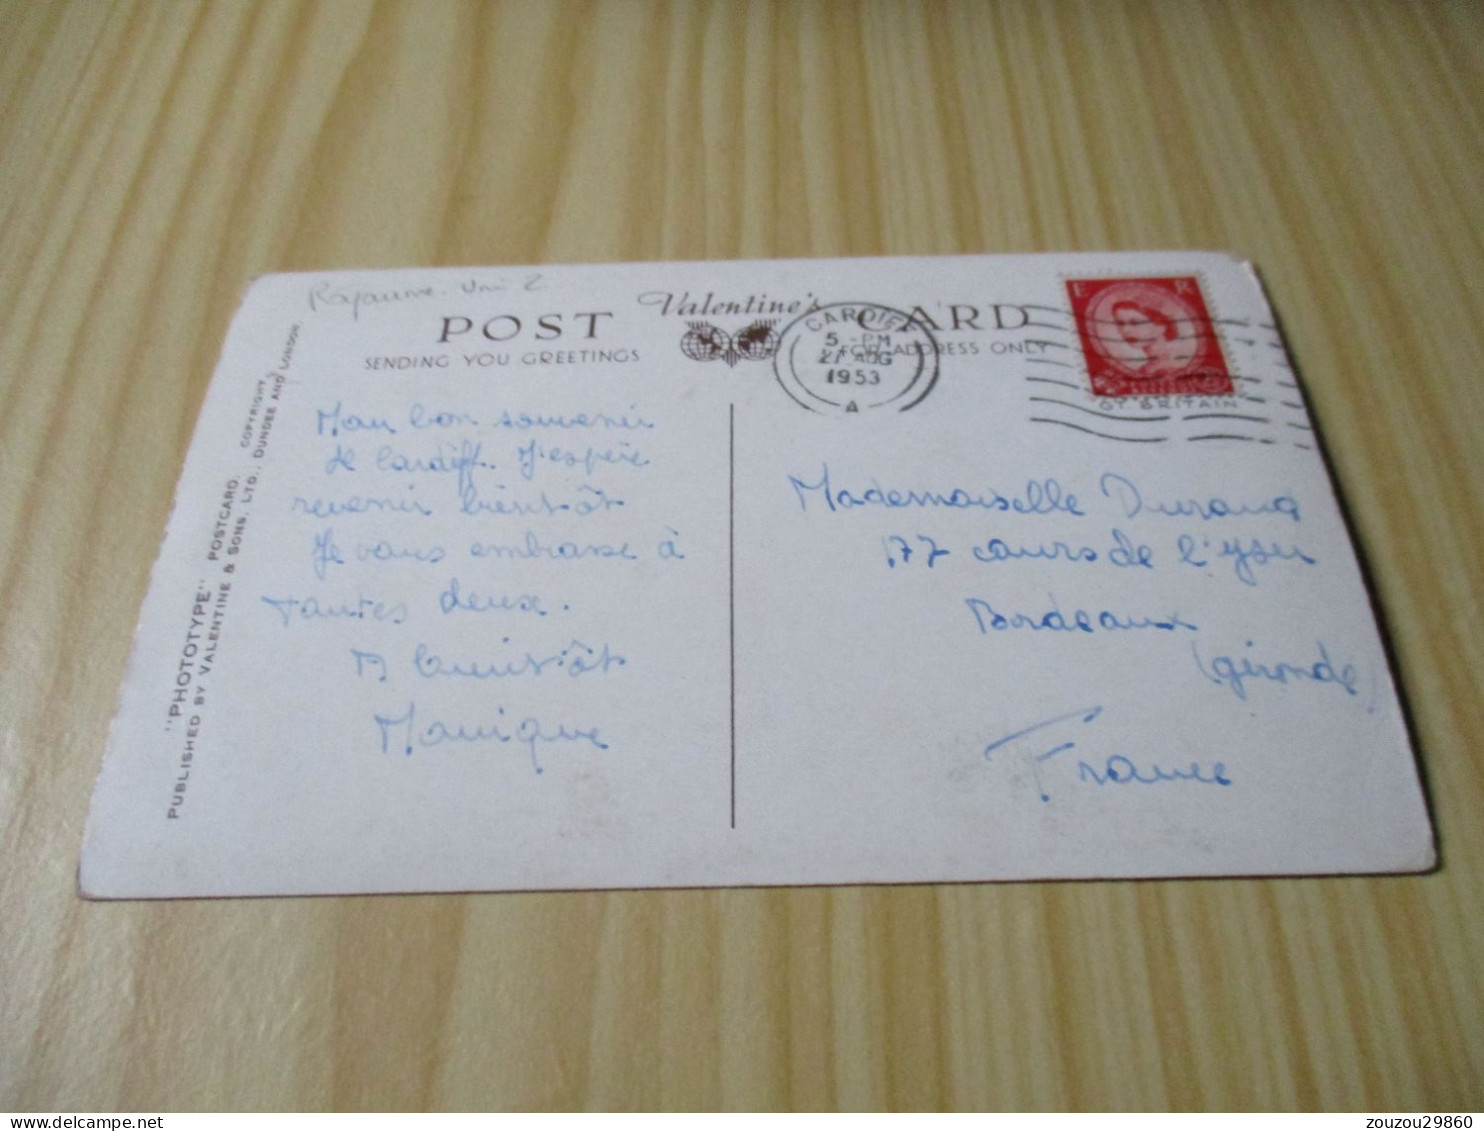 Royaume-Uni 2
Valentine's
POST CARD
SENDING YOU GREETINGS
FOR ADDRESS ONLY
CARDIFF
5 - PM
21 AUG
1953
A
E R
OY BRITAIN
Mon bon souvenir
de Cardiff. J'espère
revenir bientôt
Je vous embrasse à
toutes deux.
A bientôt
Monique
Mademoiselle Durand
177 cours de l'yser
Bordeaux
(gironde)
France
"PHOTOTYPE" POSTCARD. COPYRIGHT
PUBLISHED BY VALENTINE & SONS, LTD., DUNDEE AND LONDON
zouzou29860
delcampe.net